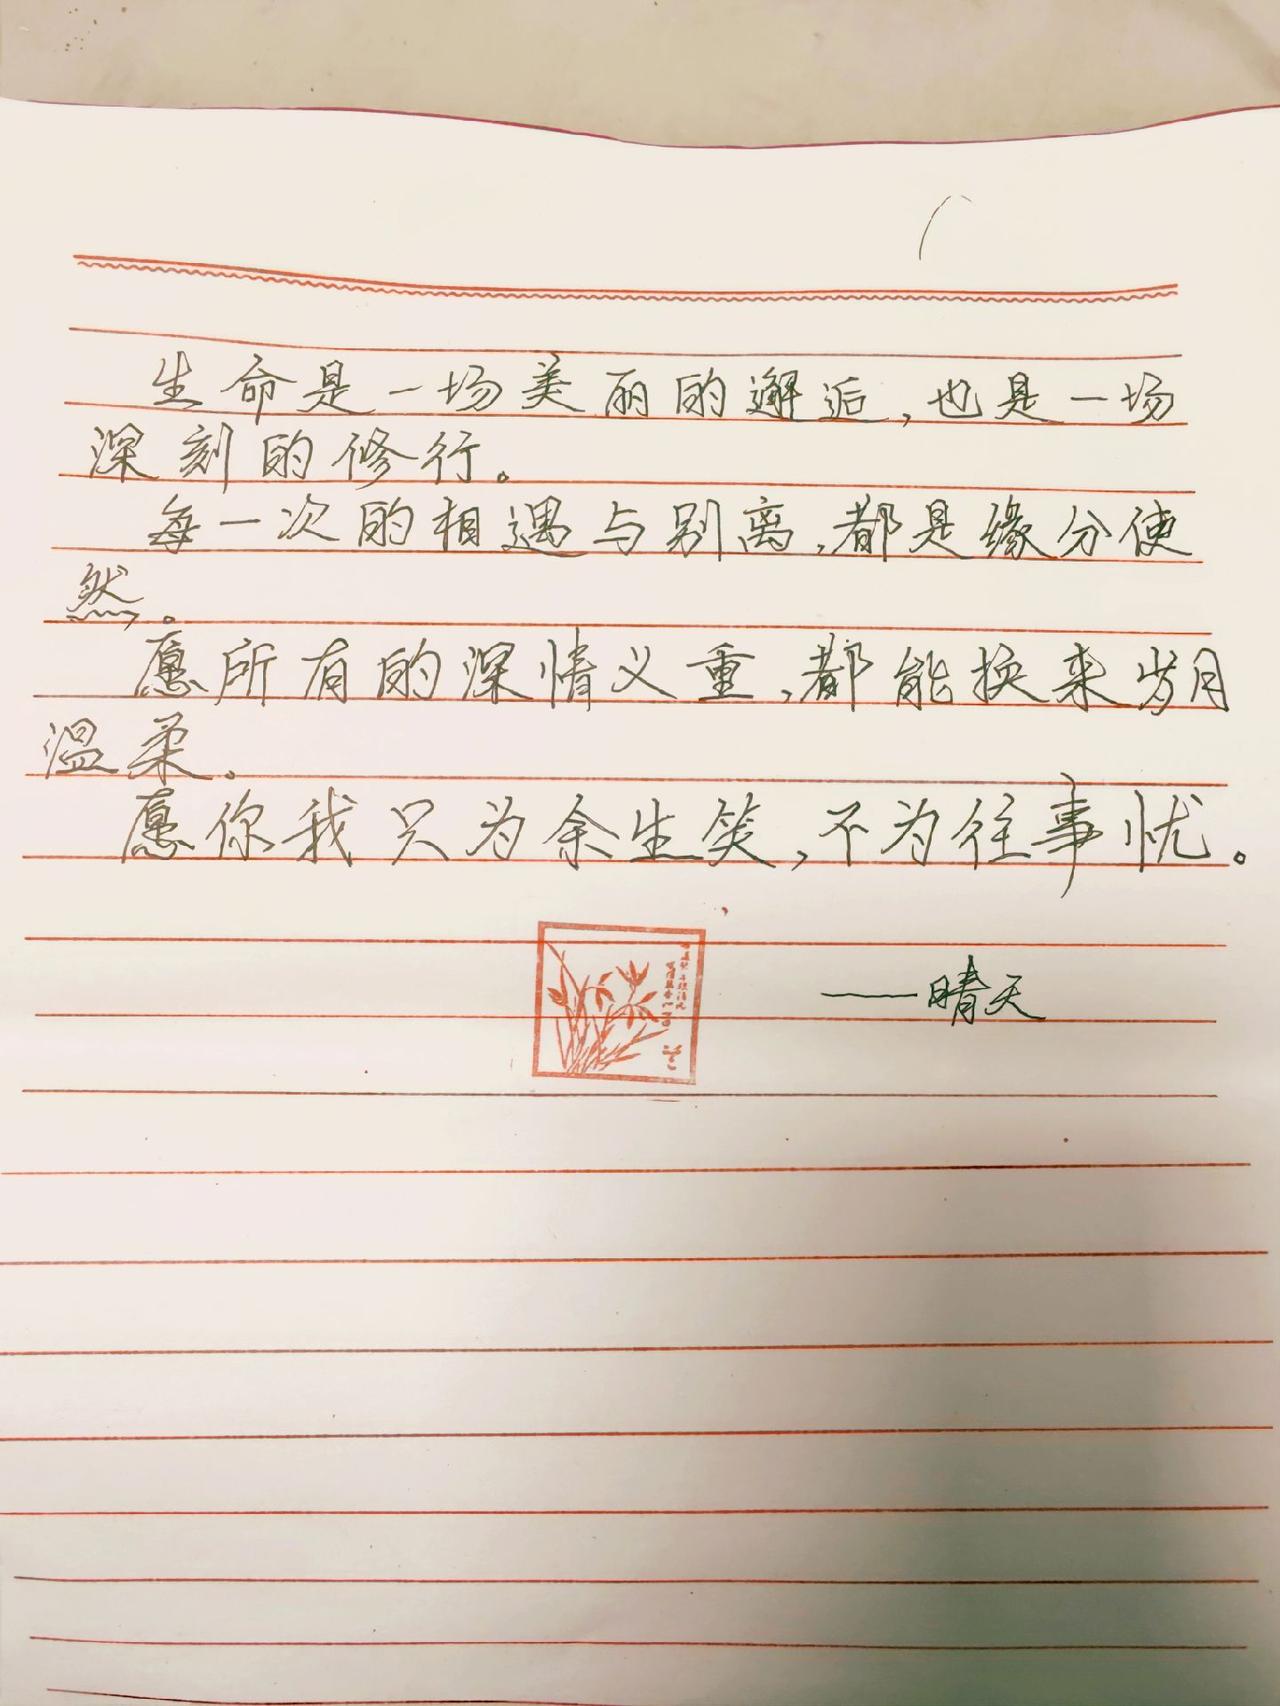 生命是一场美丽的邂逅,也是一场
深刻的修行。
每一次的相遇与别离,都是缘分使
然。
愿所有的深情义重,都能换来岁月
温柔。
愿你我只为余生笑,不为往事忧。
——晴天